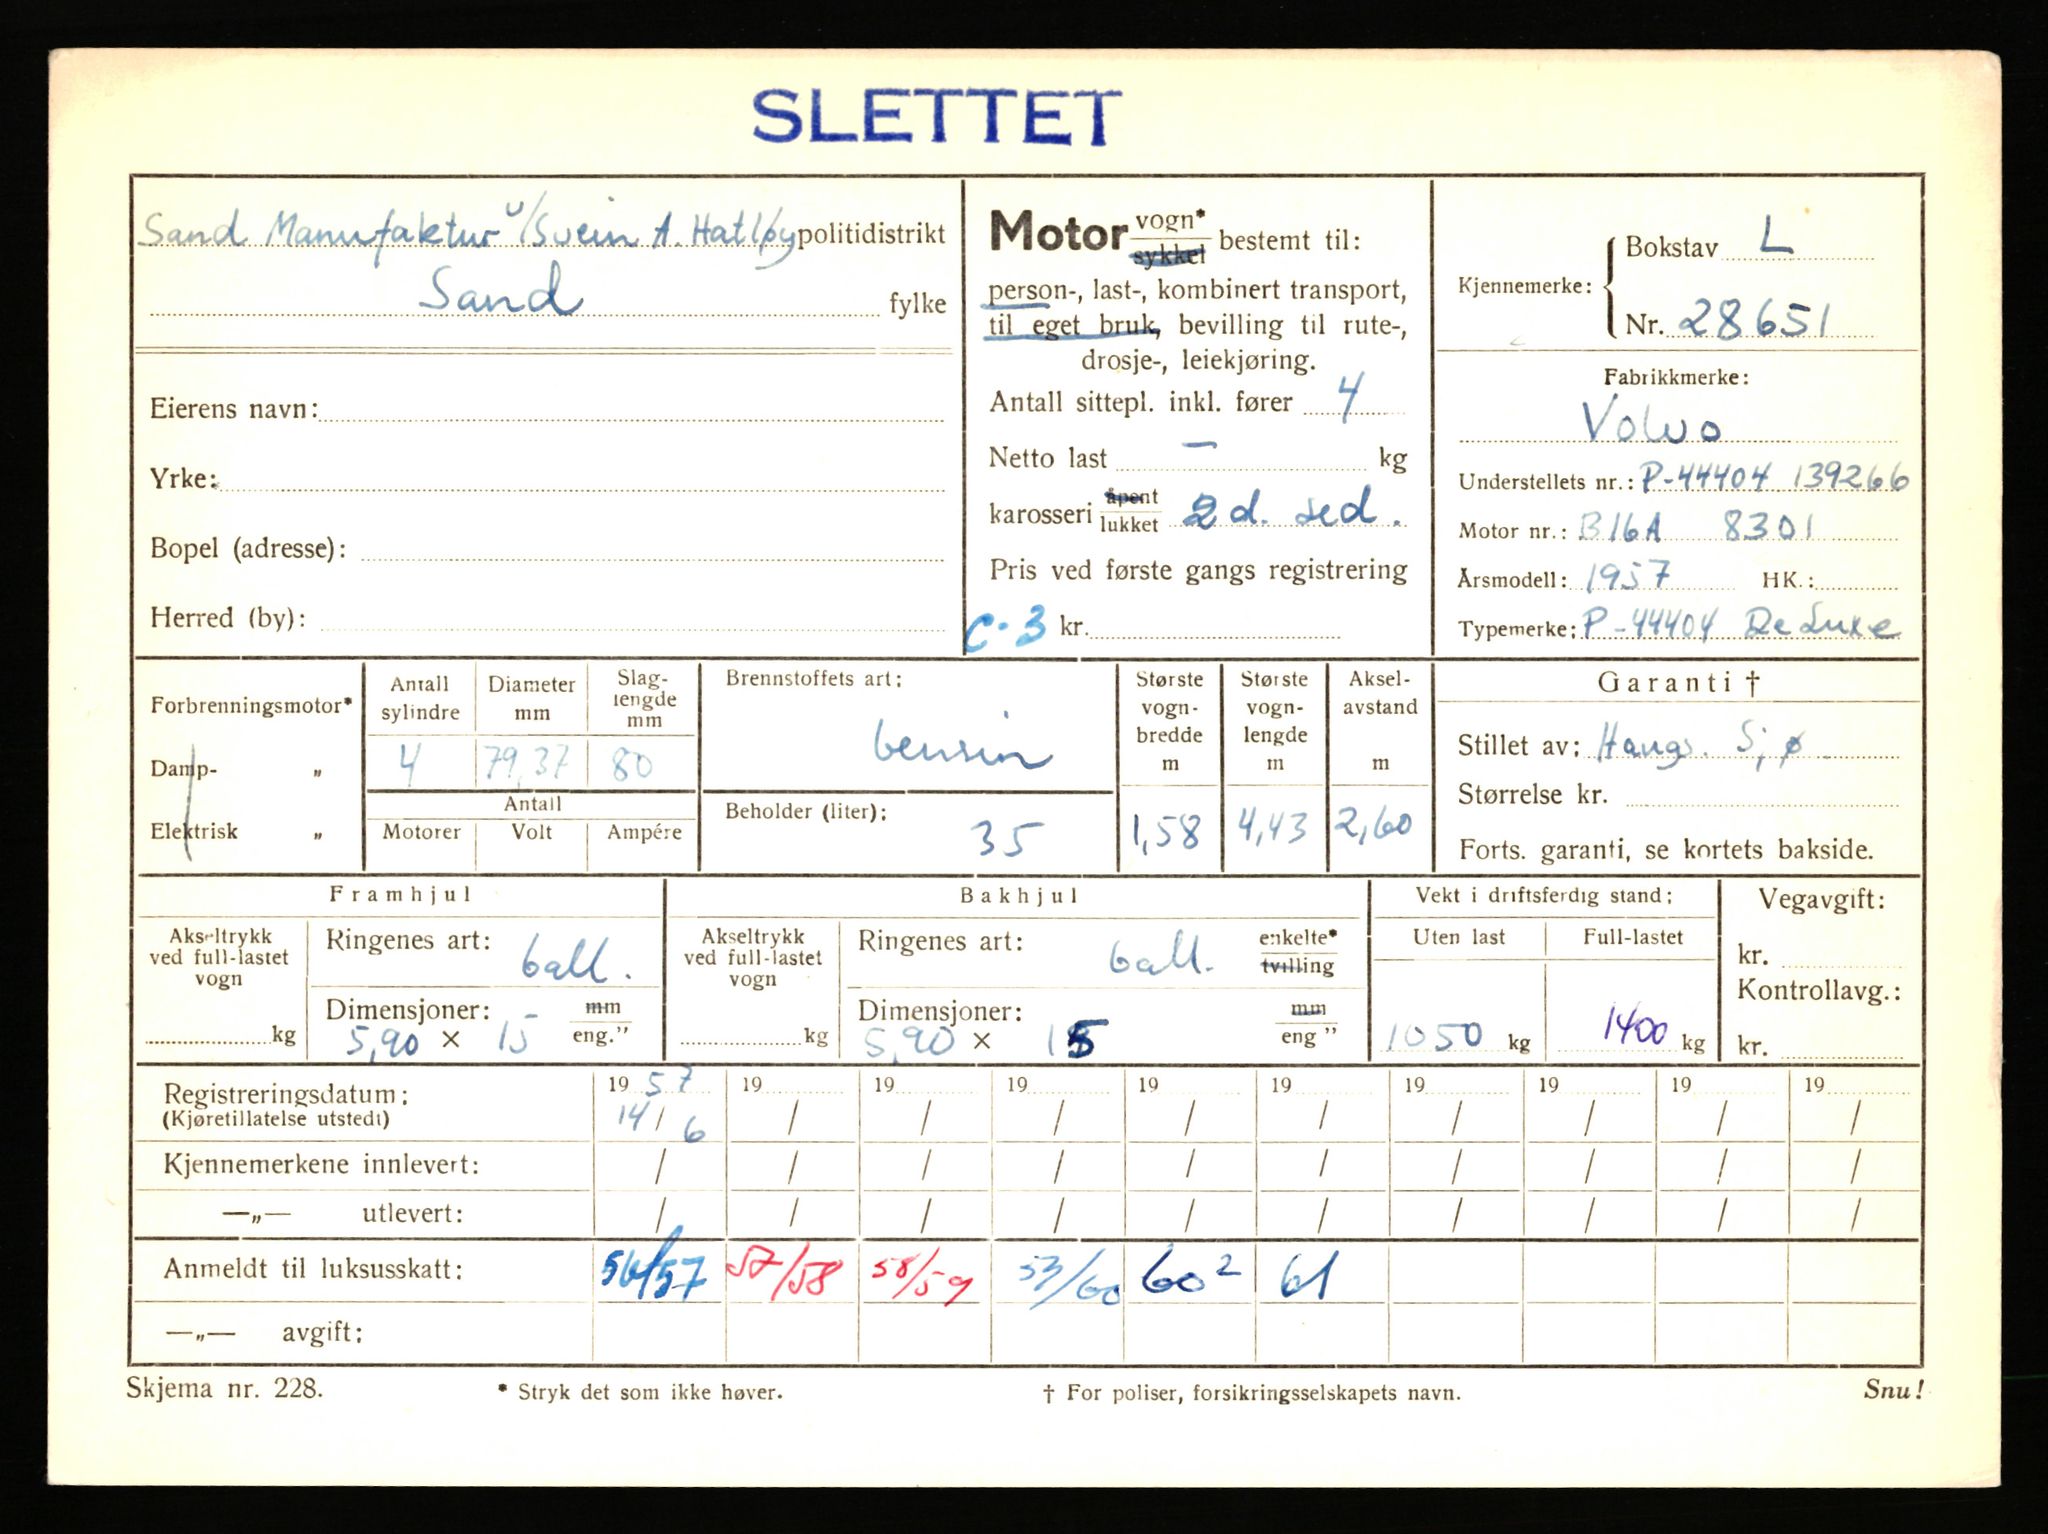 SLETTET
Sand Manufaktur v/Svein A. Hatløy politidistrikt
Sand fylke
Eierens navn:
Yrke:
Bopel (adresse):
Herred (by):
Motor vogn* sykkel bestemt til:
person-, last-, kombinert transport,
til eget bruk, bevilling til rute-,
drosje-, leiekjøring.
Antall sittepl. inkl. fører 4
Netto last — kg
karosseri åpent lukket 2 d. sed.
Pris ved første gangs registrering
C-3 kr.
Kjennemerke: Bokstav L
Nr. 28651
Fabrikkmerke:
Volvo
Understellets nr.: P-44404 139266
Motor nr.: B16A 8301
Årsmodell: 1957 HK.:
Typemerke: P-44404 De Luxe
Forbrenningsmotor*
Damp- „
Elektrisk „
Antall sylindre
4
Diameter mm
79,37
Slag-lengde mm
80
Antall
Motorer Volt Ampére
Brennstoffets art:
bensin
Beholder (liter):
35
Største vogn-bredde m
1,58
Største vogn-lengde m
4,43
Aksel-avstand m
2,60
Garanti †
Stillet av: Haugs. Sjø
Størrelse kr.
Forts. garanti, se kortets bakside.
Framhjul
Akseltrykk ved full-lastet vogn
kg
Ringenes art: ball.
Dimensjoner: mm eng.”
5,90 × 15
Bakhjul
Akseltrykk ved full-lastet vogn
kg
Ringenes art: ball. enkelte* tvilling
Dimensjoner: mm eng”
5,90 × 15
Vekt i driftsferdig stand:
Uten last Full-lastet
1050 kg 1400 kg
Vegavgift:
kr.
Kontrollavg.:
kr.
Registreringsdatum: 1957 19 19 19 19 19 19 19 19 19
(Kjøretillatelse utstedt) 14/6 / / / / / / / / /
Kjennemerkene innlevert: / / / / / / / / / /
—„— utlevert: / / / / / / / / / /
Anmeldt til luksusskatt: 56/57 57/58 58/59 53/60 60² 61
—„— avgift:
Skjema nr. 228. * Stryk det som ikke høver. † For poliser, forsikringsselskapets navn. Snu!